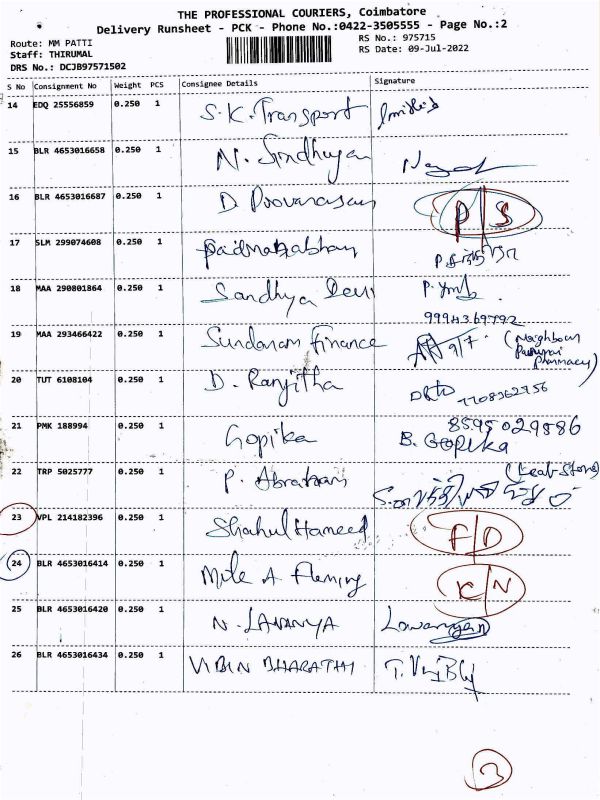 THE PROFESSIONAL COURIERS, Coimbatore
Delivery Runsheet - PCK - Phone No.:0422-3505555 - Page No.:2
Route: MM PATTI
RS No.: 975715
Staff: THIRUMAL
RS Date: 09-Jul-2022
DRS No.: DCJB97571502
S No Consignment No Weight PCS Consignee Details Signature
14 EDQ 25556859 0.250 1 S.K. Transport
15 BLR 4653016658 0.250 1 N. Sindhuja
16 BLR 4653016687 0.250 1 D. Poovarasan P/S
17 SLM 299074608 0.250 1 Padmanabhan
18 MAA 290801864 0.250 1 Sandhya Devi
9994369792
19 MAA 293466422 0.250 1 Sundaram Finance 9/7 (Neighbour
pharmacy)
20 TUT 6108104 0.250 1 D. Ranjitha 7708362756
8595029586
21 PMK 188994 0.250 1 Gopika B. Gopika
22 TRP 5025777 0.250 1 P. Abraham
23 VPL 214182396 0.250 1 Shahul Hameed F/D
24 BLR 4653016414 0.250 1 Mile A. Fleming K/N
25 BLR 4653016420 0.250 1 N. LAVANYA
26 BLR 4653016434 0.250 1 VIBIN BHARATHI
3